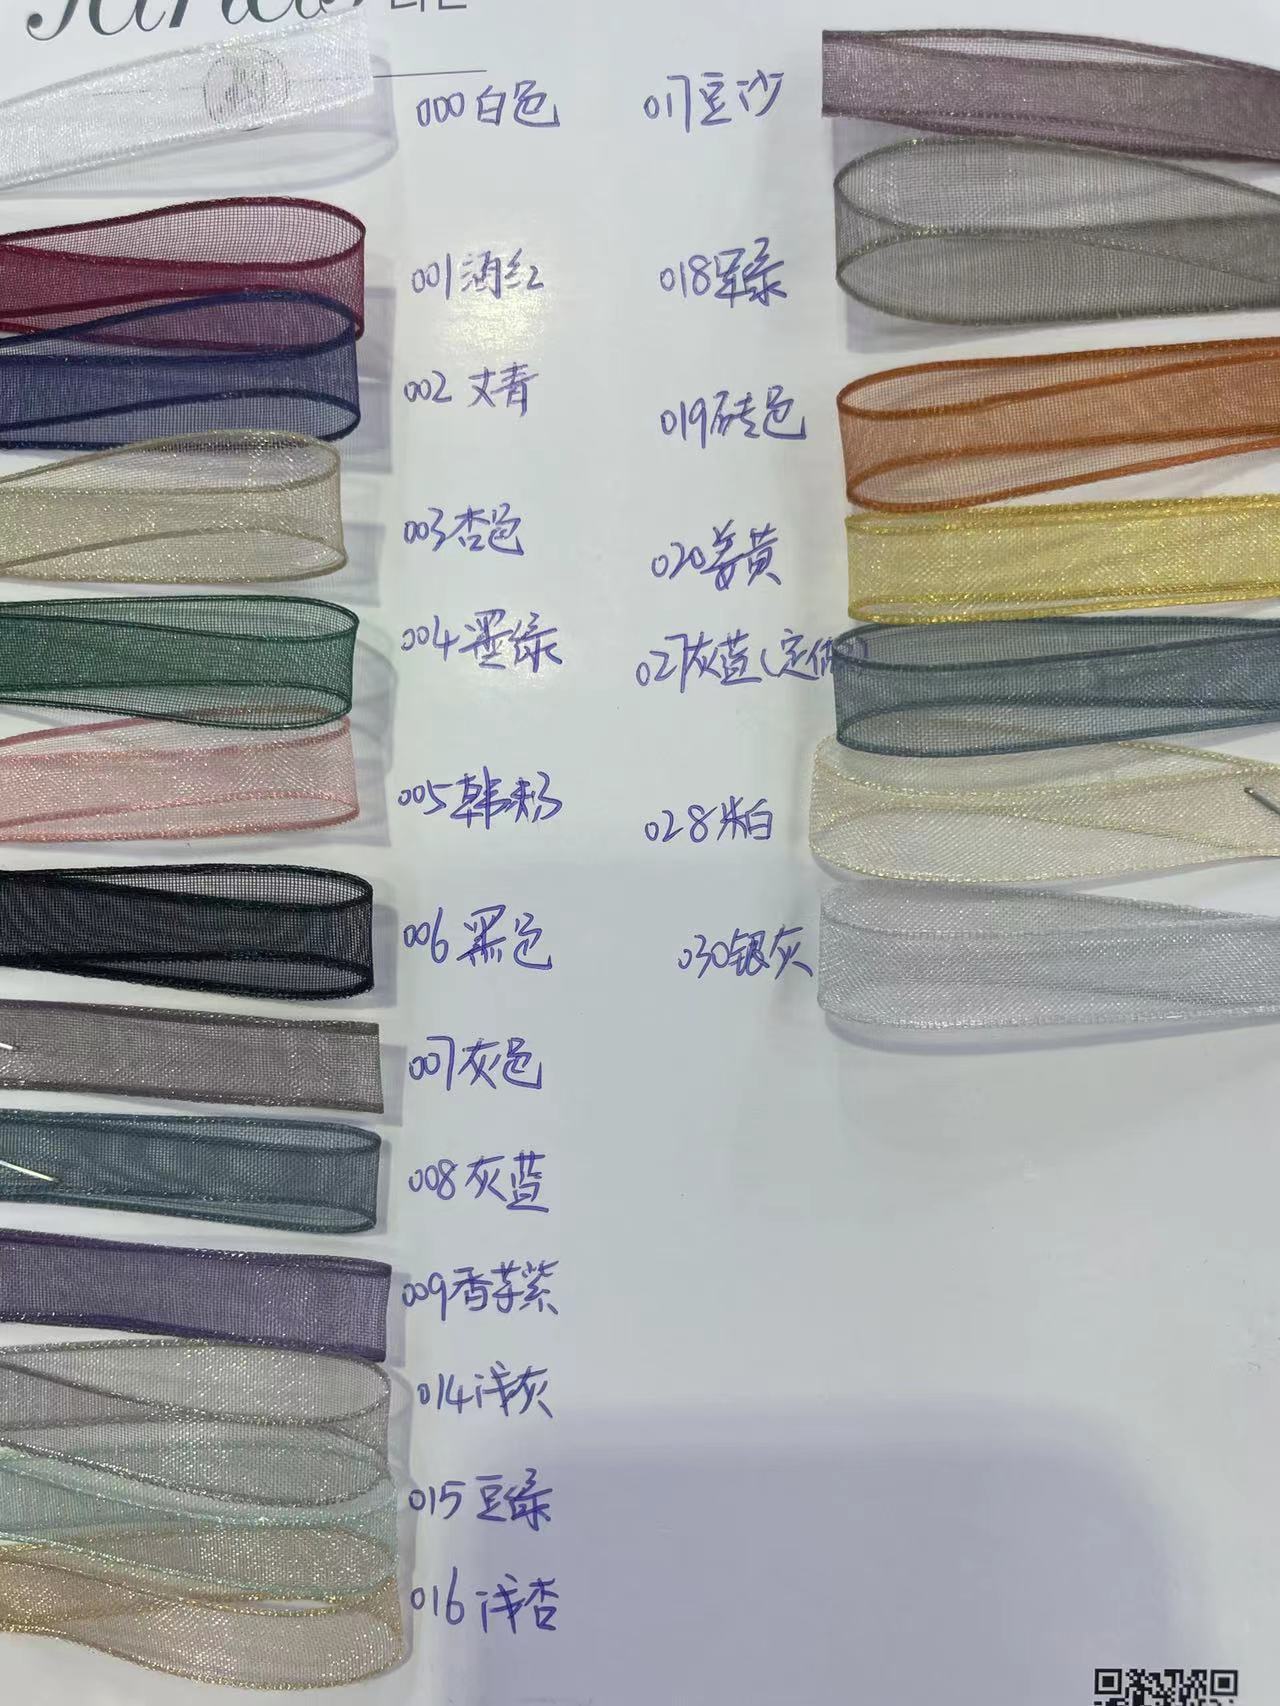 000白色
001酒红
002丈青
003杏色
004墨绿
005韩粉
006黑色
007灰色
008灰蓝
009香芋紫
014浅灰
015豆绿
016浅杏
017豆沙
018军绿
019砖色
020姜黄
027灰蓝(定做)
028米白
030银灰